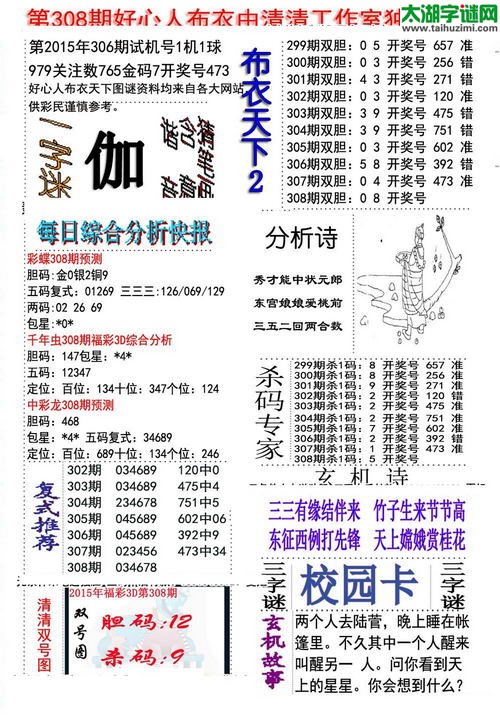 第308期好心人布衣由清清工作室
太湖字谜网
www.taihuzimi.com
第2015年306期试机号1机1球
979关注数765金码7开奖号473
好心人布衣天下图谜资料均来自各大网站,
供彩民谨慎参考。
一字迷
伽
每日综合分析快报
彩蝶308期预测
胆码:金0银2铜9
五码复式:01269 三三三:126/069/129
两码:02 26 69
包星:*0*
千年虫308期福彩3D综合分析
胆码:147包星:*4*
五码:12347
定位:百位:134十位:347个位:124
中彩龙308期预测
胆码:468
包星:*4* 五码复式:34689
定位:百位:689十位:134个位:246
复式推荐
302期 034689 120中0
303期 034689 475中4
304期 234678 751中5
305期 045689 602中06
306期 045689 392中9
307期 023456 473中34
308期 034678
清清双号图
2015年福彩3D第308期
双号图
胆码:12
杀码:9
布衣天下2
299期双胆:0 5 开奖号 657 准
300期双胆:0 3 开奖号 256 错
301期双胆:4 3 开奖号 271 错
302期双胆:0 3 开奖号 120 准
303期双胆:3 9 开奖号 475 错
304期双胆:3 9 开奖号 751 错
305期双胆:0 3 开奖号 602 准
306期双胆:5 8 开奖号 392 错
307期双胆:0 4 开奖号 473 准
308期双胆:0 8 开奖号
分析诗
秀才能中状元郎
东宫娘娘爱桃前
三五二回两合数
杀码专家
299期杀1码:8 开奖号 657 准
300期杀1码:8 开奖号 256 准
301期杀1码:9 开奖号 271 准
302期杀1码:2 开奖号 120 错
303期杀1码:2 开奖号 475 准
304期杀1码:2 开奖号 751 准
305期杀1码:7 开奖号 602 准
306期杀1码:2 开奖号 392 错
307期杀1码:1 开奖号 473 准
308期杀1码:5 开奖号
玄机诗
三三有缘结伴来 竹子生来节节高
东征西例打先锋 天上嫦娥赏桂花
三字谜
校园卡
三字谜
玄机故事
两个人去陆营,晚上睡在帐
篷里。不久其中一个人醒来
叫醒另一 人。问你看到天
上的星星。你会想到什么?